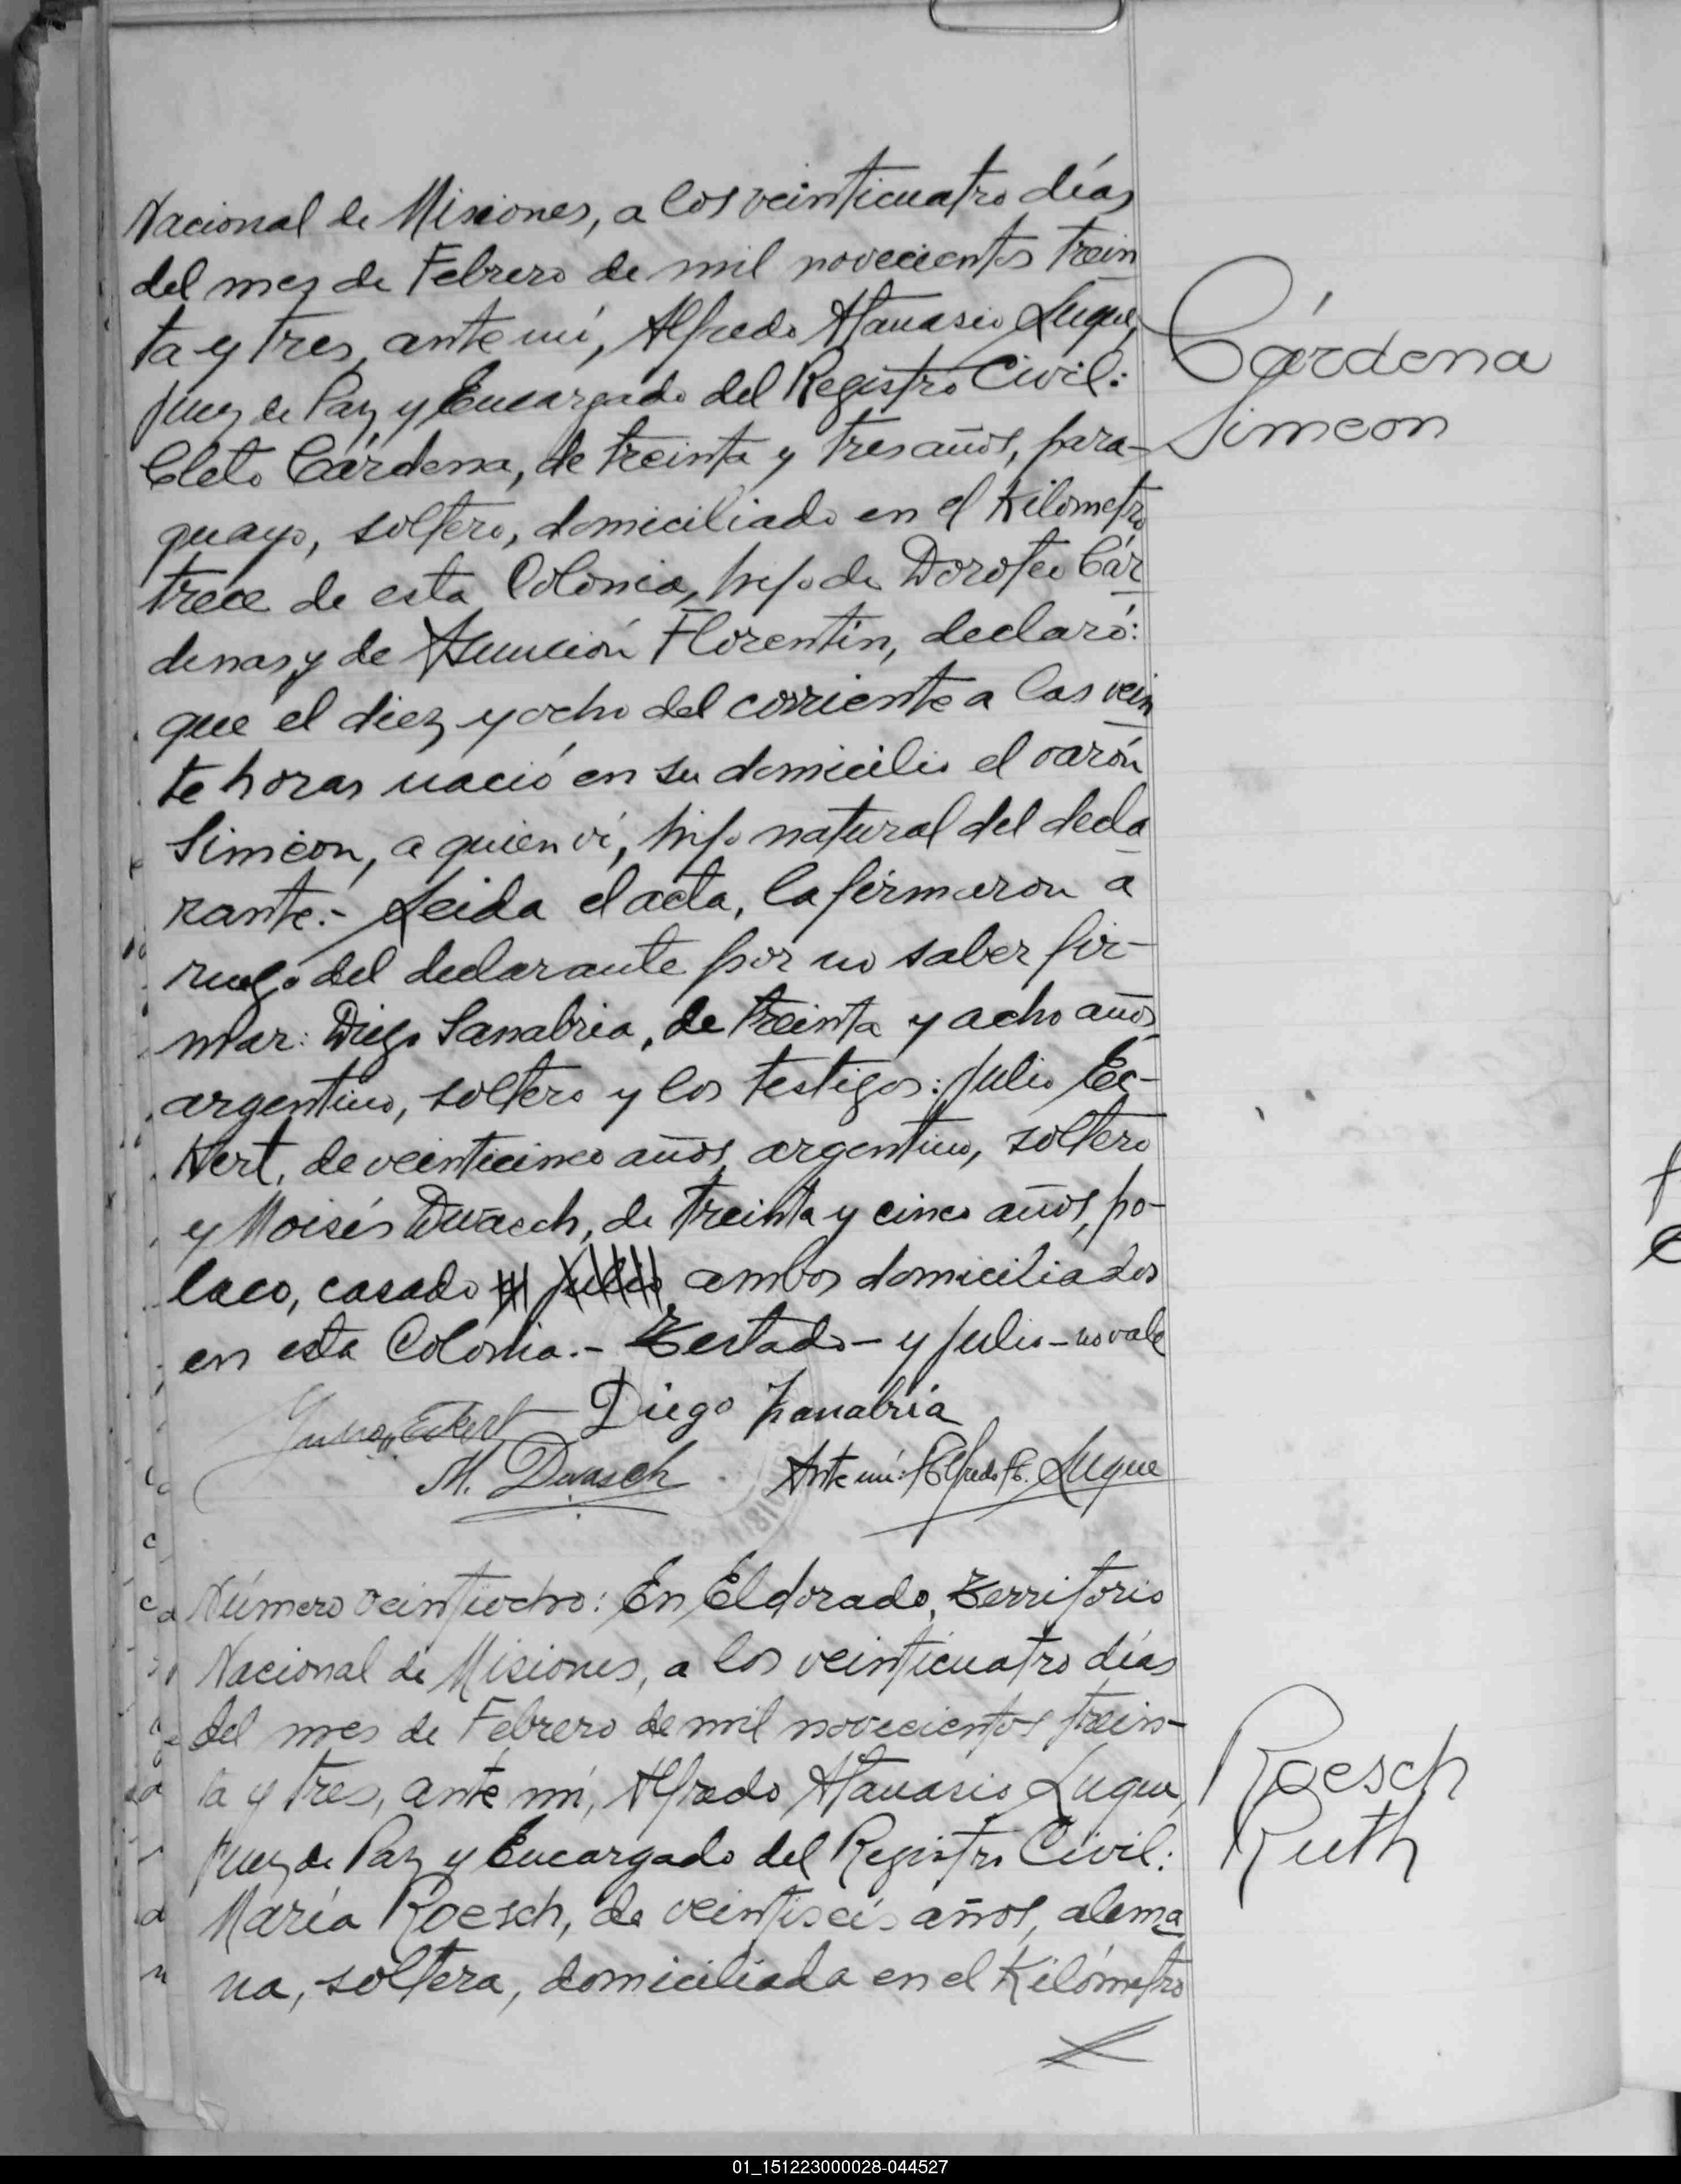 Nacional de Misiones, a los veinticuatro días
del mes de Febrero de mil novecientos trein
ta y tres, ante mí, Alfredo Atanasio Luque,
Juez de Paz y Encargado del Registro Civil:
Cleto Cárdena, de treinta y tres años, para-
guayo, soltero, domiciliado en el Kilometro
trece de esta Colonia, hijo de Doroteo Cár
denas y de Asunción Florentín, declaró:
que el diez y ocho del corriente a las vein
te horas nació en su domicilio el varón
Simeón, a quien ví, hijo natural del decla
rante.- Leida el acta, la firmaron a
ruego del declarante por no saber fir-
mar: Diego Sanabria, de treinta y ocho años,
argentino, soltero y los testigos: Julio Ec-
Kert, de veinticinco años, argentino, soltero
y Moisés Dwasch, de treinta y cinco años, po-
laco, casado y Julio, ambos domiciliados
en esta Colonia.- Testado - y Julio - no vale
Diego Zanabria
Eckert
M. Dwasch
Ante mí: Alfredo A. Luque
Cárdena
Simeon
Número veintiocho: En Eldorado, Territorio
Nacional de Misiones, a los veinticuatro días
del mes de Febrero de mil novecientos trein-
ta y tres, ante mí, Alfredo Atanasio Luque,
Juez de Paz y Encargado del Registro Civil:
María Roesch, de veintiseis años, alema
na, soltera, domiciliada en el Kilómetro
Roesch
Ruth
01_151223000028-044527